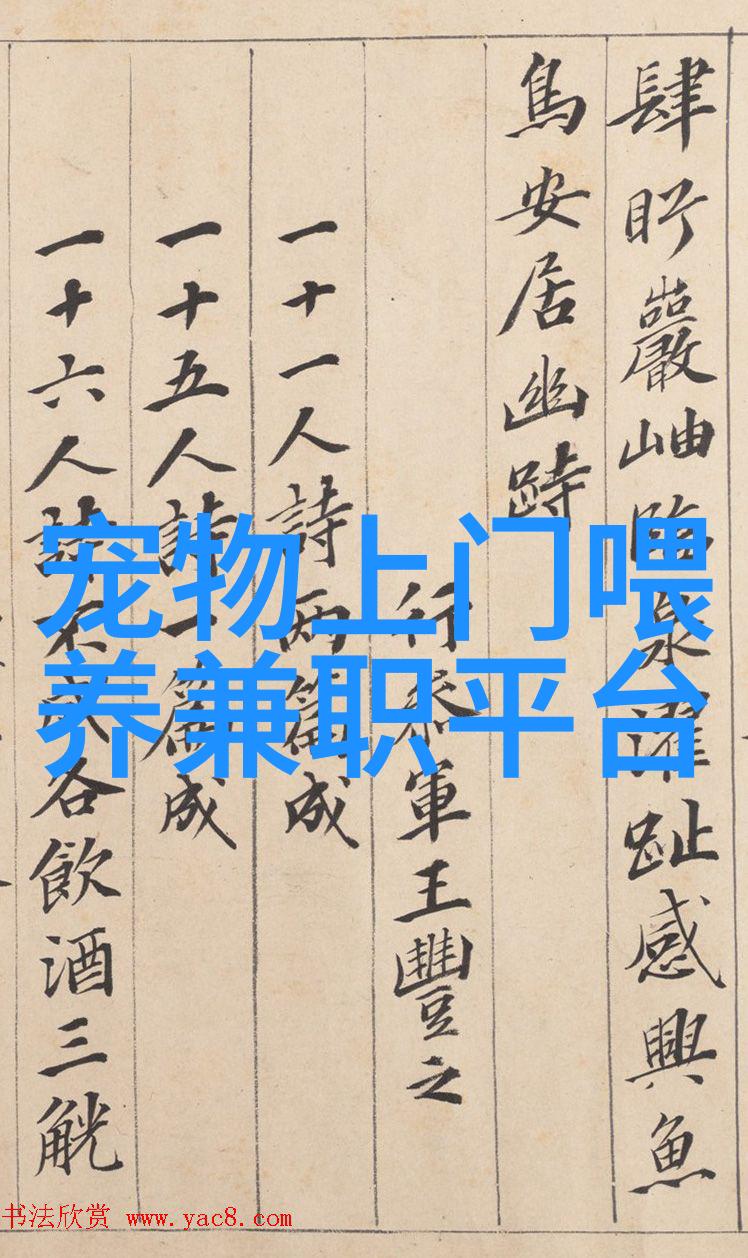 肆盱巖岫臨泉濯趾感興魚
鳥安居幽跱
行參軍王豐之
一十一人詩兩篇成
一十五人詩一篇成
一十六人詩不成各飲酒三觥
宠物上门喂
养兼职平台
书法欣赏 www.yac8.com